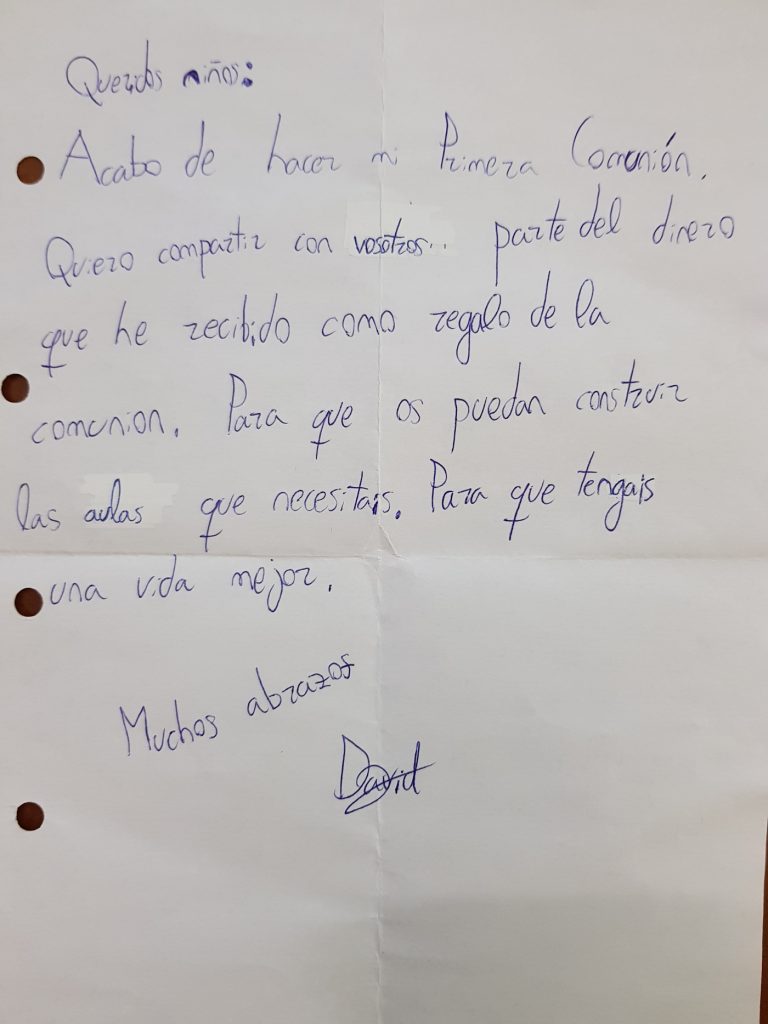 Queridos niños:
Acabo de hacer mi Primera Comunión.
Quiero compartir con vosotros.. parte del dinero
que he recibido como regalo de la
comunion. Para que os puedan construir
las aulas que necesitais. Para que tengais
una vida mejor.
Muchos abrazos
David